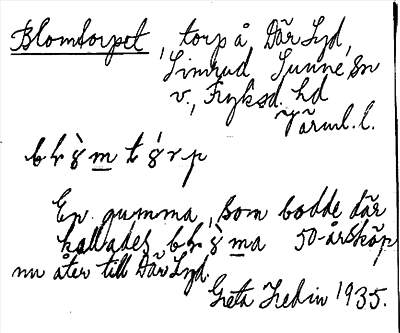 Blomtorpet, torp å Där Syd,
Simrud Sunne sn
v., Fryksd. hd
Värml. l.
En gumma, som bodde där
kallades 50-årsköp
nu åter till Där Syd.
Greta Hedin 1935.